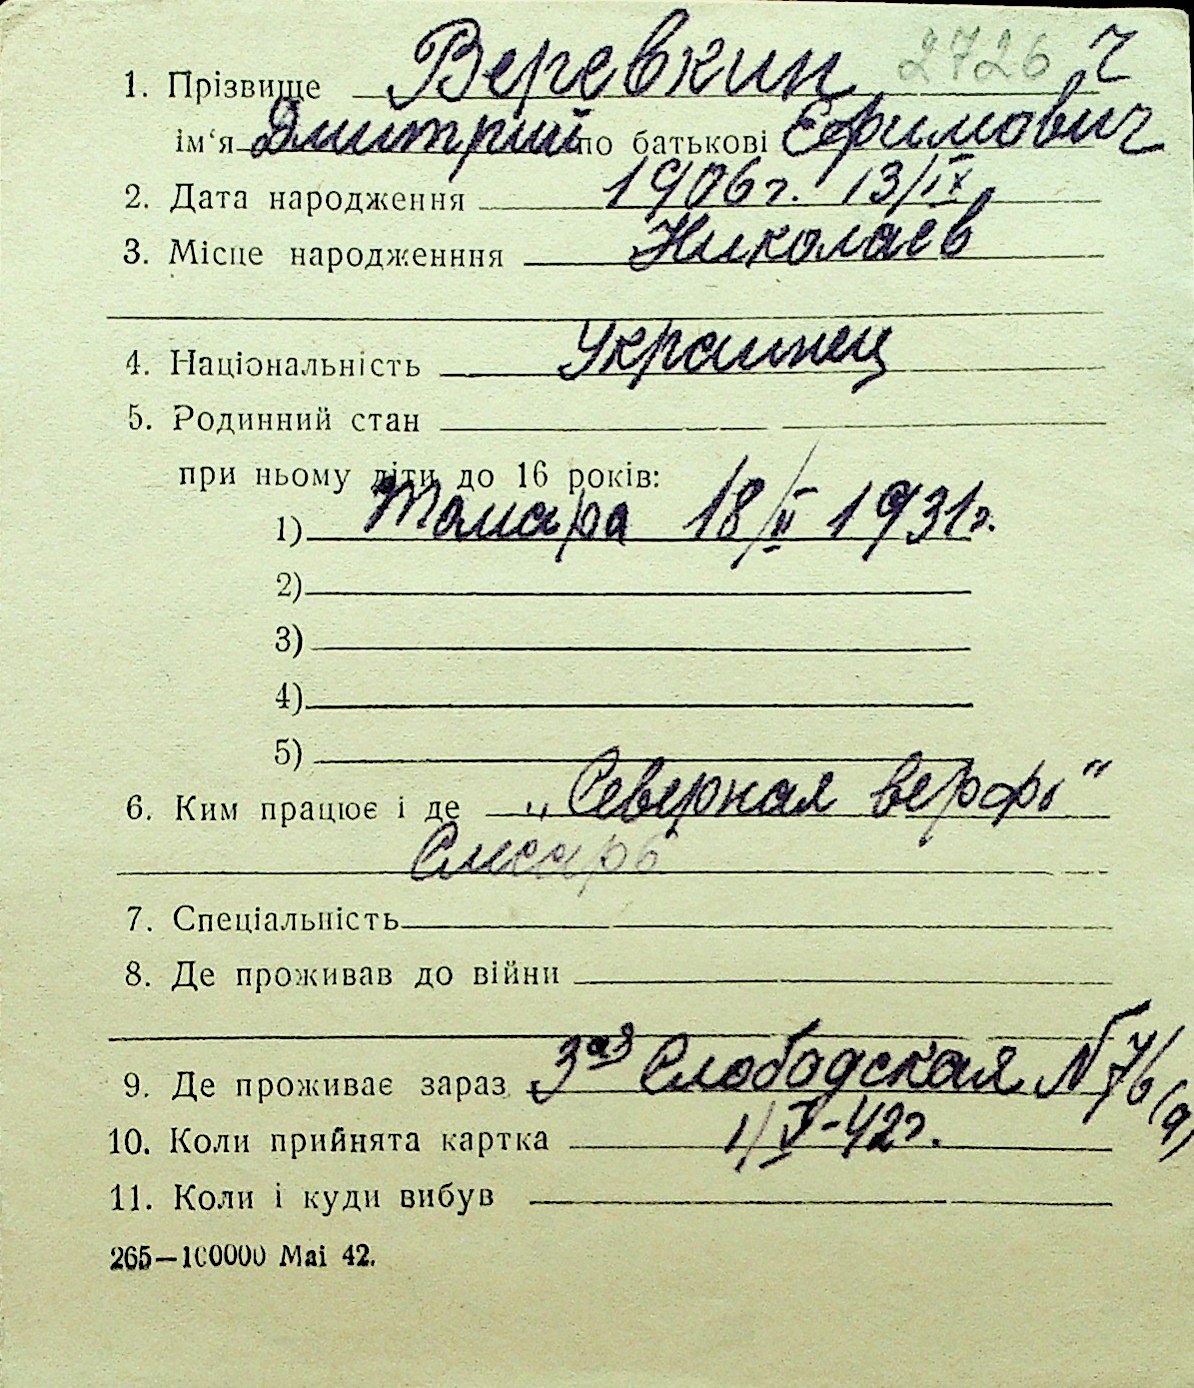 1. Прізвище Веревкин 2726 ч
ім‘я Дмитрий по батькові Ефимович
2. Дата народження 1906 г. 13/IX
3. Місце народженння Николаев
4. Національність Украинец
5. Родинний стан
при ньому діти до 16 років:
1) Тамара 18/II 1931 г.
2)
3)
4)
5)
6. Ким працює і де „Северная верфь"
Слесарь
7. Спеціальність
8. Де проживав до війни
9. Де проживає зараз 3ая Слободская N 76 (а)
10. Коли прийнята картка 1/V-42 г.
11. Коли і куди вибув
265—100000 Mai 42.